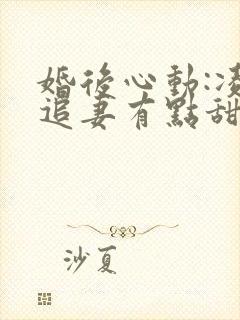 婚後心動:凌
追妻有點甜
沙夏